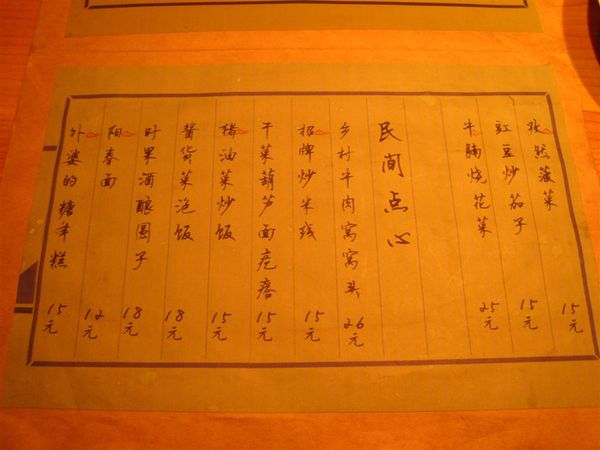 孜然菠菜 15元
豇豆炒茄子 15元
牛腩烧花菜 25元
民间点心
乡村牛肉窝窝头 26元
招牌炒米线 15元
干菜葫芦面疙瘩 15元
猪油菜炒饭 15元
酱货菜泡饭 18元
时果酒酿圆子 18元
阳春面 12元
外婆的糖年糕 15元